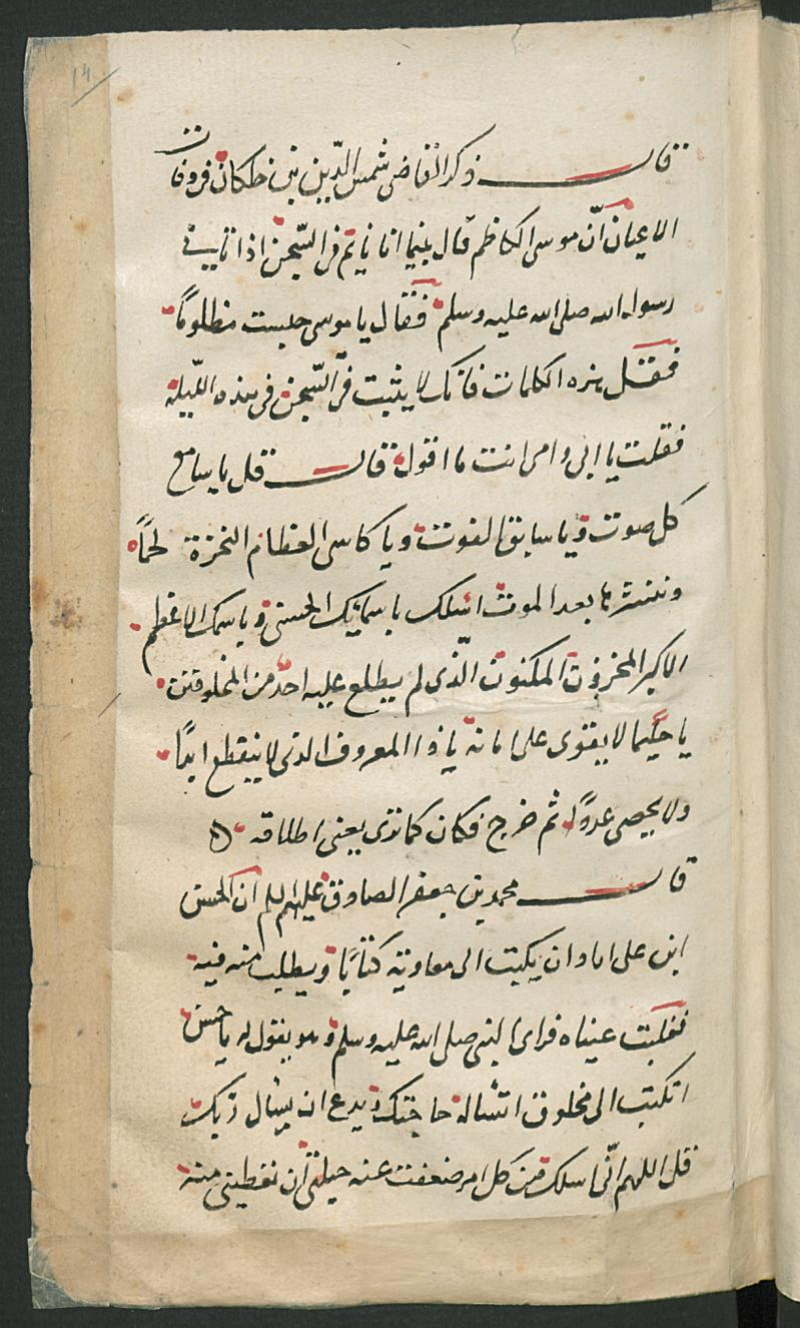 14
قال ذكر القاضى شمس الدّين بن خلكان فى وفات
الاعيان انّ موسى الكاظم قال بينما انا نايم فى السّجن اذا تانى
رسول الله صلى الله عليه وسلم فقال يا موسى حبست مظلومًا
فقل هذه الكلمات فانك لا يثبت فى السّجن فى هذه اللّيلة
فقلت يا ابى وامى انت ما اقول قال قل يا سامع
كل صوت ويا سابق الفوت ويا كاسى العظام النخرة لحمًا
وننشزها بعد الموت اسلك باسمائك الحسنى وباسمك الاعظم
الاكبر المخزون المكنون الّذى لم يطلع عليه احد من المخلوقين
يا حليما لا يقوى على اناته يا ذا المعروف الذى لا ينقطع ابدًا
ولا يحصى عددًا ثم خرج فكان كما ترى يعنى اطلاقه
قال محمد بن جعفر الصادق عليهم السلم ان الحسن
ابن على اراد ان يكتب الى معاوية كتابًا ويطلب منه فيه
فغلبت عيناه فراى النبى صلى الله عليه وسلم وهو يقول له يا حسن
اتكتب الى مخلوق اتساله حاجتك وتدع ان يسال ربك
قل اللهم انّى اسلك من كل امر ضعفت عنه حيلتى ان تعطينى منه